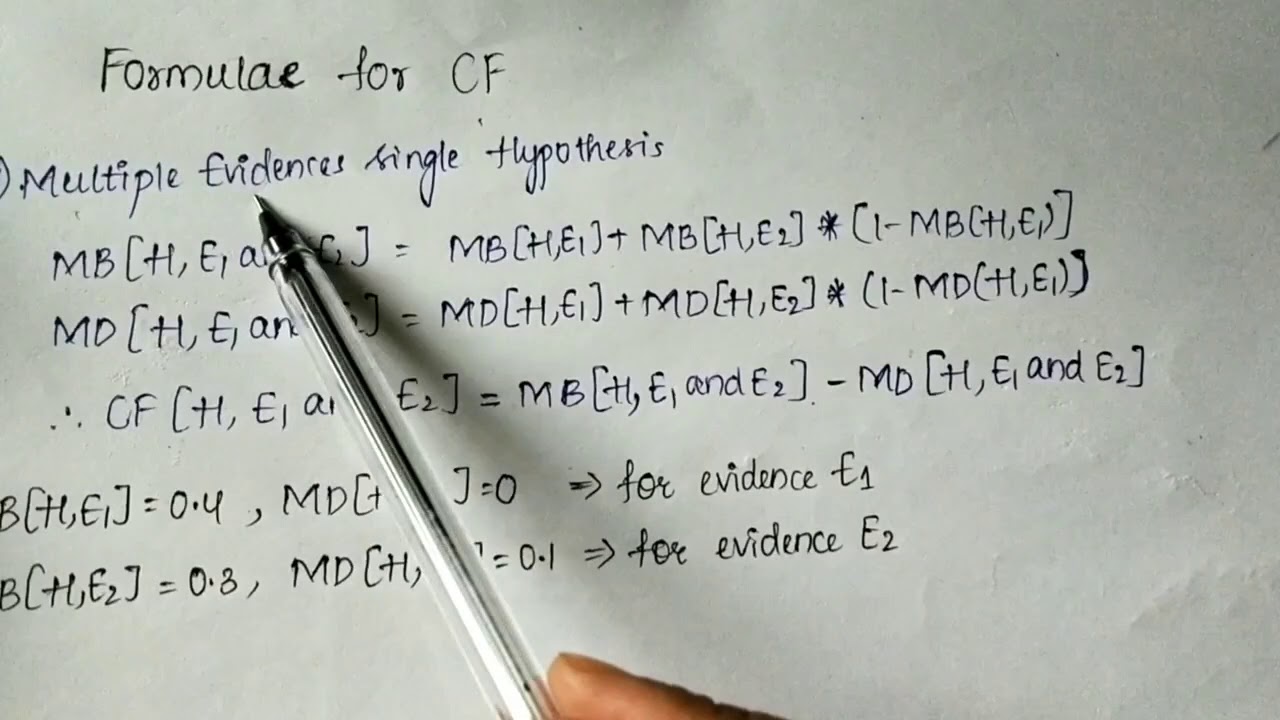 Formulae for CF
) Multiple Evidences single Hypothesis
MB[H, E1 a E2] = MB[H,E1] + MB[H,E2] * (1-MB(H,E1)]
MD[H, E1 an ] = MD[H,E1] + MD[H,E2] * (1-MD(H,E1)]
∴ CF[H, E1 a E2] = MB[H, E1 and E2] - MD[H, E1 and E2]
B[H,E1] = 0.4 , MD[H ] = 0 ⇒ for evidence E1
B[H,E2] = 0.3, MD[H, ] = 0.1 ⇒ for evidence E2